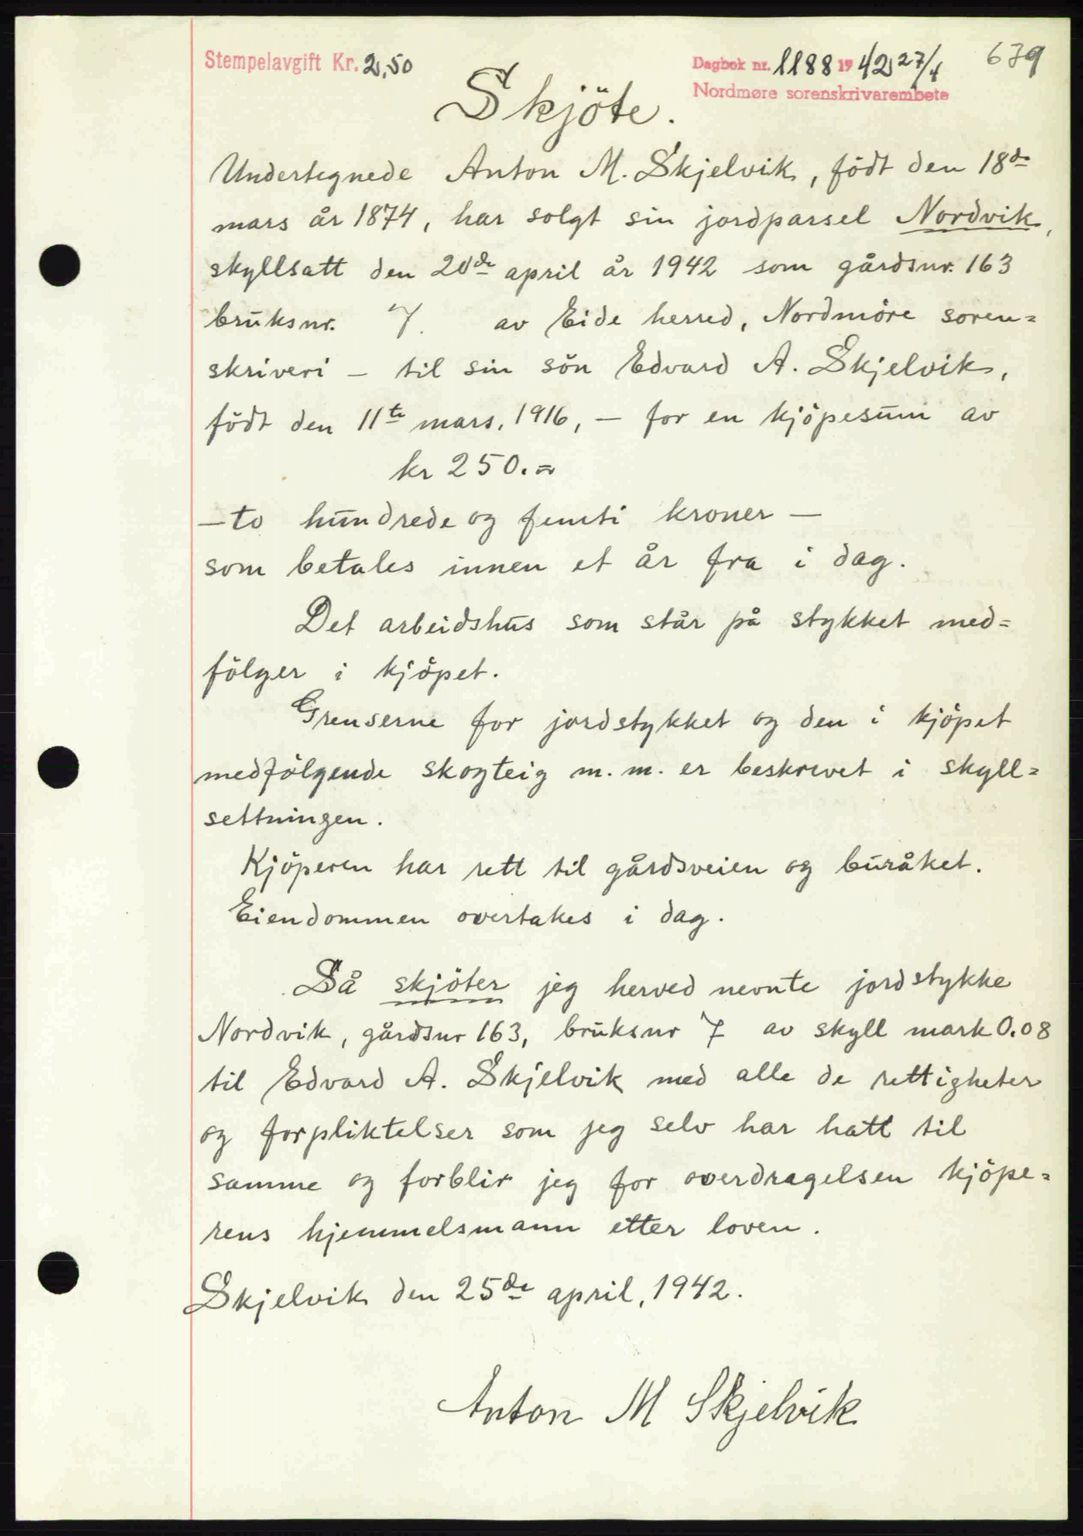 Stempelavgift Kr. 2,50
Dagbok nr. 1188 1942 27/4
639
Nordmøre sorenskrivarembete
Skjöte.
Undertegnede Anton M. Skjelvik, födt den 18de
mars år 1874, har solgt sin jordparsel Nordvik,
skyllsatt den 20de april år 1942 som gårdsnr. 163
bruksnr. 7. av Eide herred, Nordmöre soren=
skriveri – til sin sön Edvard A. Skjelvik,
födt den 11te mars, 1916, – for en kjöpesum av
kr 250.=
– to hundrede og femti kroner –
som betales innen et år fra i dag.
Det arbeidshus som står på stykket med=
fölger i kjöpet.
Grenserne for jordstykket og den i kjöpet
medfölgende skogteig m.m. er beskrevet i skyll=
settningen.
Kjöperen har rett til gårdsveien og buråket.
Eiendommen overtakes i dag.
Så skjöter jeg herved nevnte jordstykke
Nordvik, gårdsnr 163, bruksnr 7 av skyll mark 0.08
til Edvard A. Skjelvik med alle de rettigheter
og forpliktelser som jeg selv har hatt til
samme og forblir jeg for overdragelsen kjöpe=
rens hjemmelsmann etter loven.
Skjelvik den 25de april, 1942.
Anton M Skjelvik